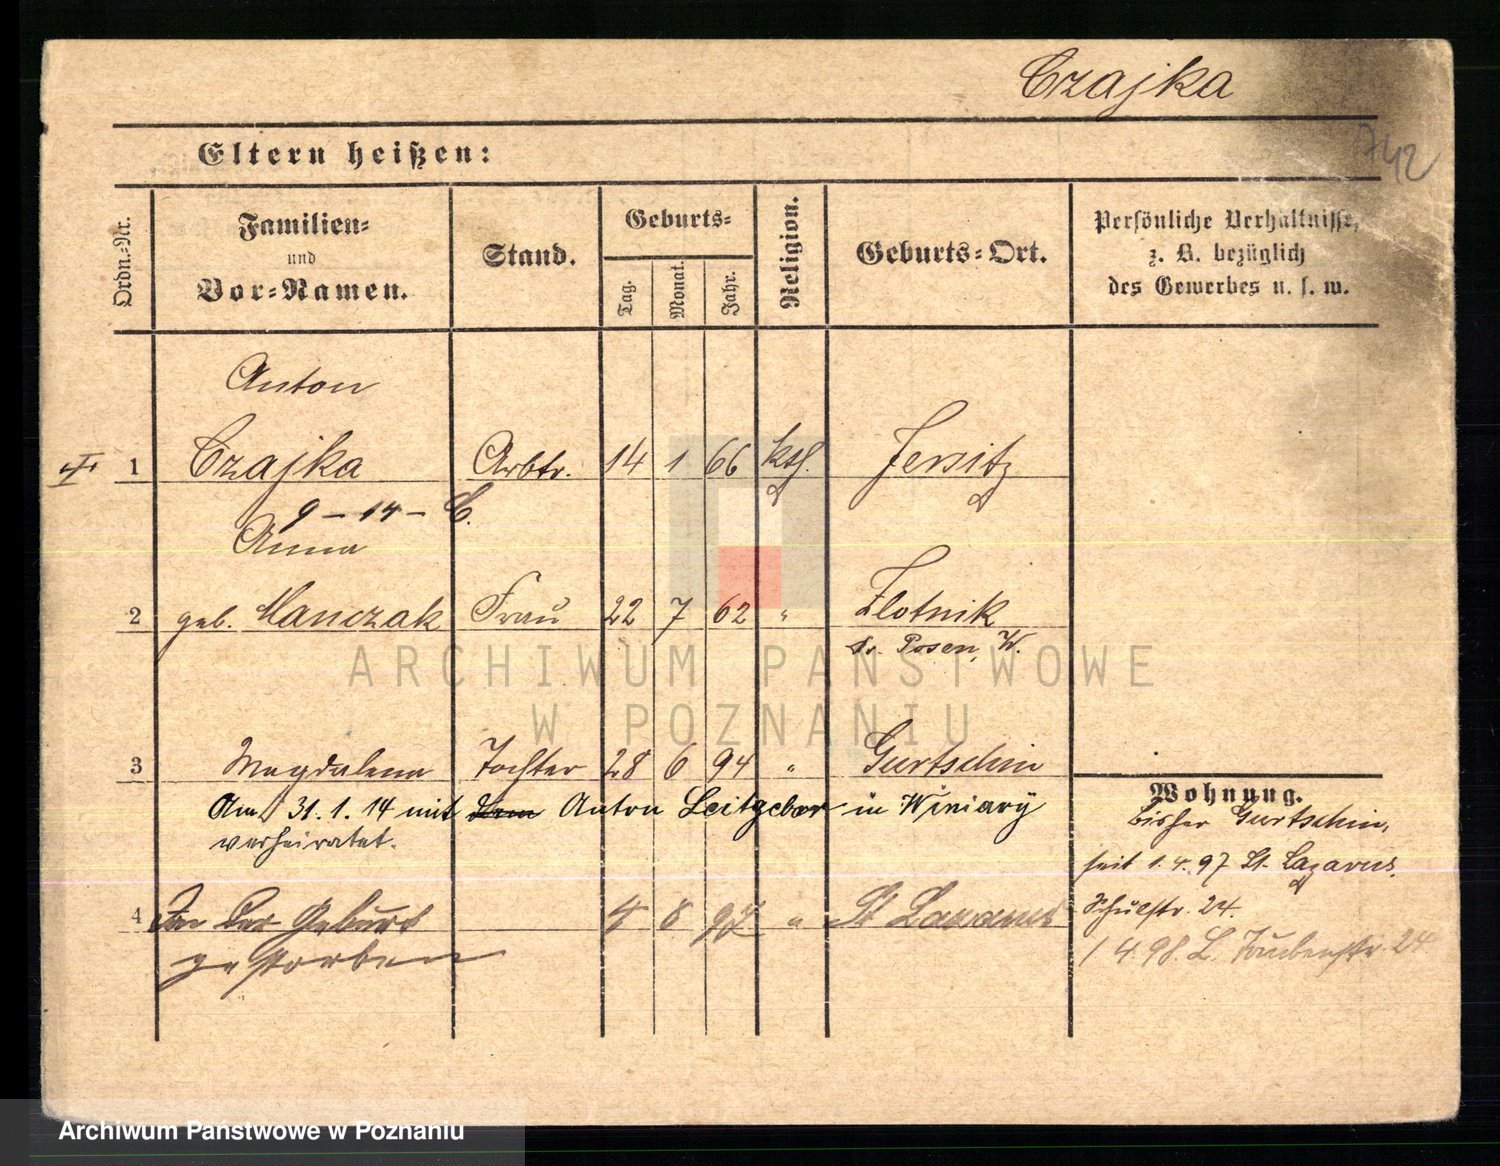 Czajka
742
Eltern heißen:
Ordn.-Nr.
Familien-
und
Vor-Namen.
Stand.
Geburts-
Tag.
Monat.
Jahr.
Religion.
Geburts-Ort.
Persönliche Verhältnisse,
z. B. bezüglich
des Gewerbes u. s. w.
Anton
1 Czajka Arbtr. 14 1 66 kth. Jersitz
9 - 14 - C.
Anna
2 geb. Manczak Frau 22 7 62 " Zlotnik
Kr. Posen, W.
3 Magdalena Tochter 28 6 94 " Gurtschin
Am 31.1.14 mit Anton Leitgeber in Winiary
verheiratet.
4 In der Geburt 4 8 97 " St Lazarus
gestorben
Wohnung.
bisher Gurtschin,
seit 1.4.97 St. Lazarus,
Schulstr. 24.
1 4 98. L. Taubenstr. 24
ARCHIWUM PAŃSTWOWE
W POZNANIU
Archiwum Państwowe w Poznaniu